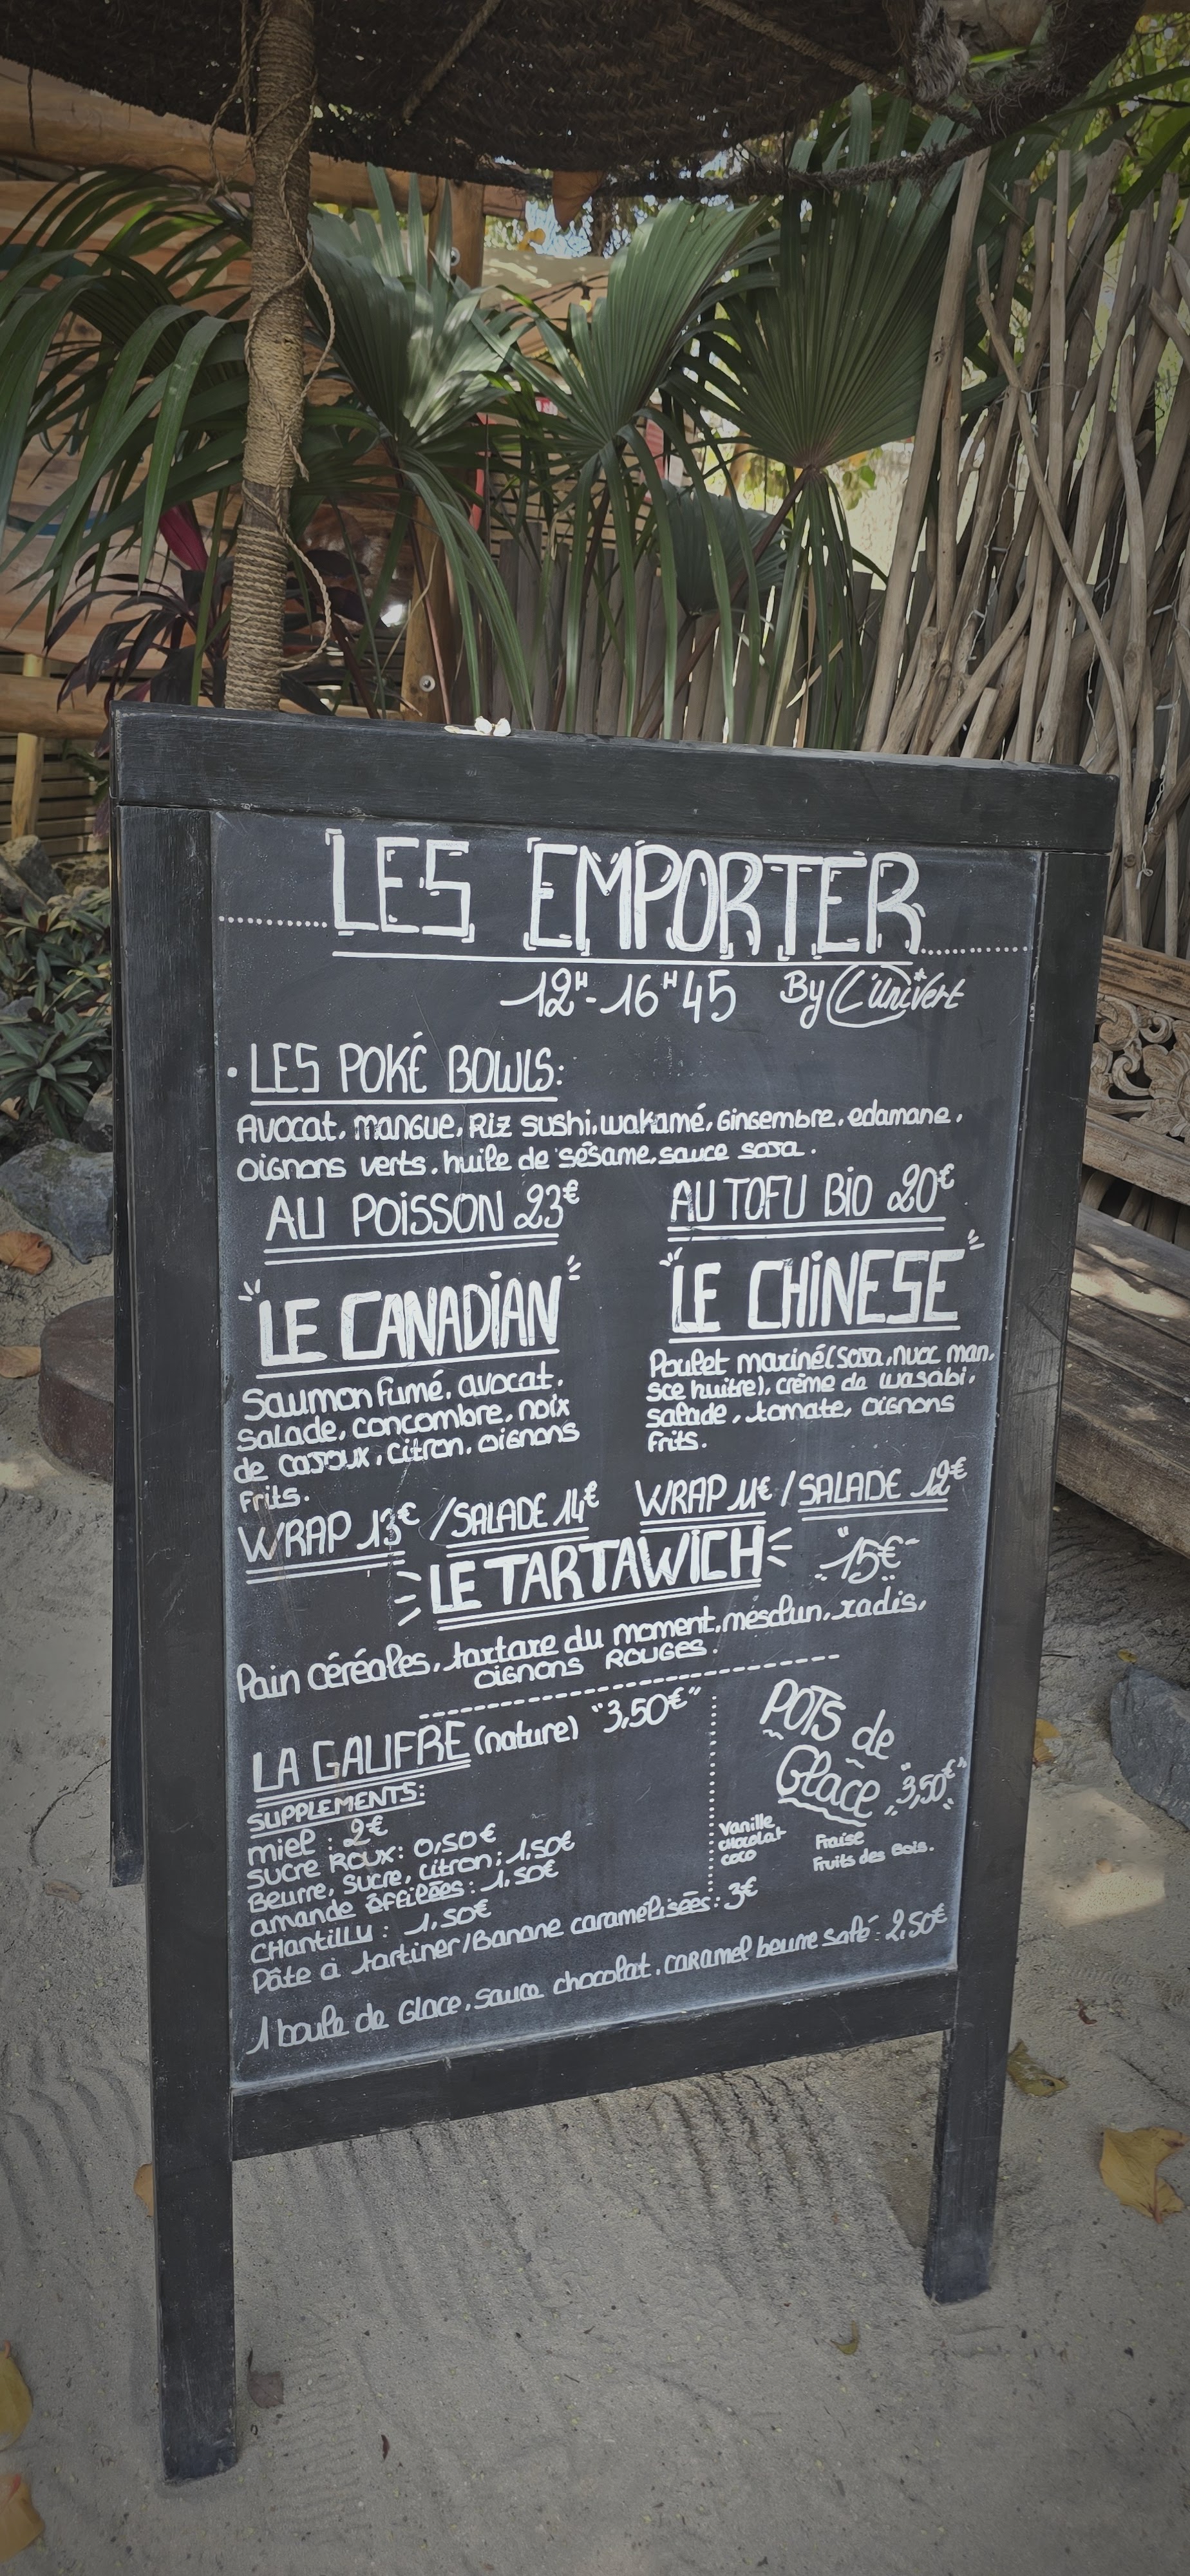 LES EMPORTER
12H-16H45 By L'Univert
• LES POKÉ BOWLS:
Avocat, mangue, Riz sushi, wakamé, Gingembre, edamane,
oignons verts, huile de sésame, sauce soja.
AU POISSON 23€
AU TOFU BIO 20€
"LE CANADIAN"
Saumon fumé, avocat,
salade, concombre, noix
de cajoux, citron, oignons
frits.
WRAP 13€ / SALADE 14€
"LE CHINESE"
Poulet mariné (soja, nuoc man,
sce huitre), crème de wasabi,
salade, tomate, oignons
frits.
WRAP 11€ / SALADE 12€
LE TARTAWICH "15€"
Pain céréales, tartare du moment, mesclun, radis,
oignons ROUGES.
LA GAUFRE (nature) "3,50€"
SUPPLEMENTS:
miel : 2€
sucre Roux: 0,50€
Beurre, sucre, citron; 1.50€
amande éffilées: 1,50€
CHantilly : 1,50€
Pâte à tartiner/Banane caramélisées: 3€
1 boule de Glace, sauce chocolat, caramel beurre salé: 2,50€
POTS de
Glace "3,50€"
vanille
chocolat
coco
Fraise
Fruits des Bois.